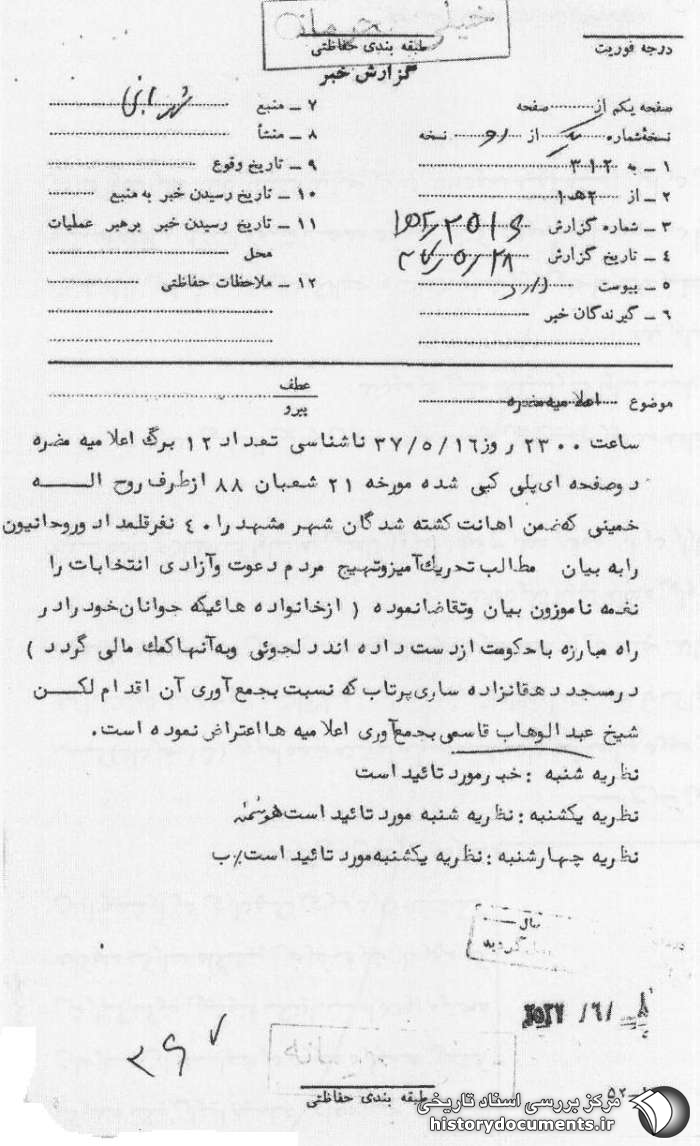 خیلی محرمانه
درجه فوریت
طبقه بندی حفاظتی
گزارش خبر
صفحه یکم از صفحه
نسخه شماره یک از نسخه
۱ – به ۳۱۲
۲ – از ۲ه‍۱
۳ – شماره گزارش
۴ – تاریخ گزارش ۲۸/۵/۳۷
۵ – پیوست دارد
۶ – گیرندگان خبر
۷ – منبع
۸ – منشأ
۹ – تاریخ وقوع
۱۰ – تاریخ رسیدن خبر به منبع
۱۱ – تاریخ رسیدن خبر برهبر عملیات
محل
۱۲ – ملاحظات حفاظتی
موضوع اعلامیه مضره
عطف
پیرو
ساعت ۲۳۰۰ روز ۳۷/۵/۱۶ ناشناسی تعداد ۱۲ برگ اعلامیه مضره
دوصفحه ای پلی کپی شده مورخه ۲۱ شعبان ۸۸ ازطرف روح الـــه
خمینی که ضمن اهانت کشته شدگان شهر مشهد را ۴۰ نفر قلمداد وروحانیون
رابه بیان مطالب تحریک آمیزوتهیج مردم دعوت وآزادی انتخابات را
نغمه ناموزون بیان وتقاضانموده ( ازخانواده هائیکه جوانان خودرادر
راه مبارزه باحکومت ازدست داده انددلجوئی وبه آنهاکمک مالی گردد )
درمسجد دهقانزاده ساری پرتاب که نسبت بجمع آوری آن اقدام لکـن
شیخ عبدالوهاب قاسمی بجمع آوری اعلامیه هااعتراض نموده است.
نظریه شنبه : خبرمورد تائید است
نظریه یکشنبه : نظریه شنبه مورد تائید است
نظریه چهارشنبه : نظریه یکشنبه مورد تائید است٪ ب
طبقه بندی حفاظتی
مرکز بررسی اسناد تاریخی
historydocuments.ir